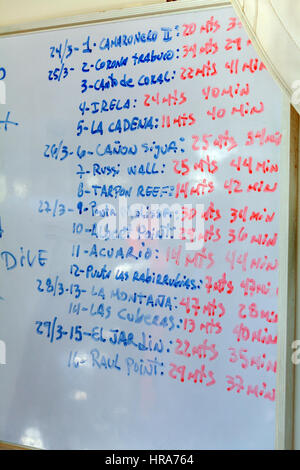 24/3- 1- CAMARONERO II : 20 MTS 39
25/3- 2- CORONA TRABUCO : 34 MTS 29
3- CANTO DE CORAL : 22 MTS 41 MIN
4- IRELA : 24 MTS 40 MIN
5- LA CADENA : 11 MTS 40 MIN
26/3- 6- CAÑON SIGUA : 25 MTS 34 MIN
7- RUSSI WALL : 25 MTS 44 MIN
8- TARPON REEF : 14 MTS 42 MIN
27/3- 9- PUNTA : 30 MTS 34 MIN
10- POINT : MTS 36 MIN
DIVE
11- ACUARIO : 14 MTS 44 MIN
12- PUNTA LAS RABIRRUBIAS : 7 MTS
28/3-13- LA MONTAÑA : 47 MTS 28
14- LAS CUBERAS : 13 MTS 40 MIN
29/3-15- EL JARDIN : 22 MTS 35 MIN
16- RAUL POINT : 29 MTS 37 MIN
alamy
Image ID: HRA764
www.alamy.com